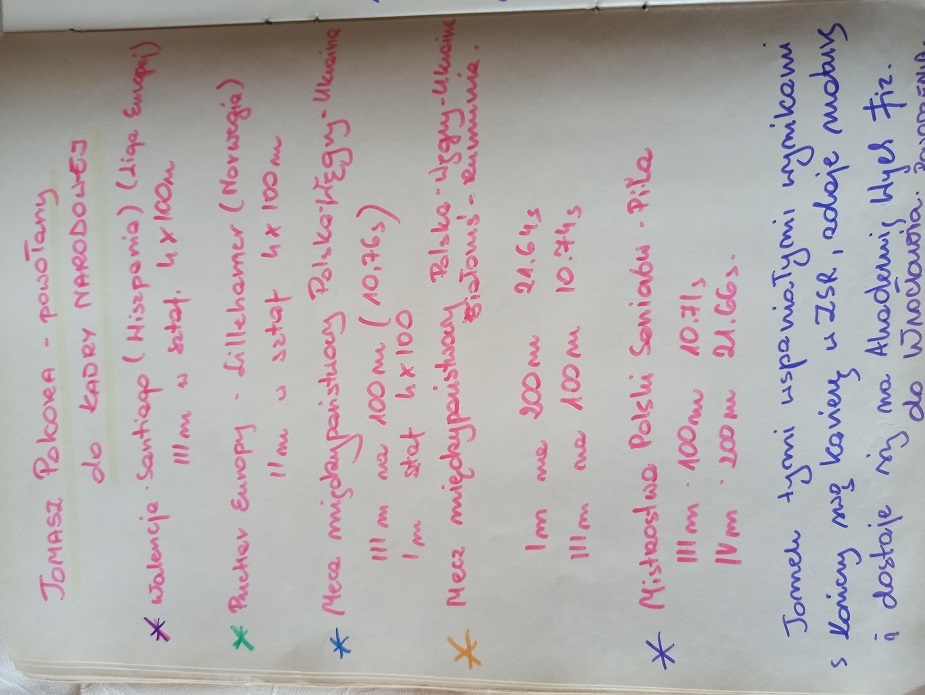 TOMASZ POKORA - powołany
do KADRY NARODOWEJ
* Walencja. Santiago (Hiszpania) (Liga Europej)
III m w sztaf. 4 x 100m
* Puchar Europy - Lillehamer (Norwegia)
II m w sztaf 4 x 100m
* Mecz międzypaństwowy Polska-Węgry-Ukraina
III m na 100m (10.76s)
I m sztaf 4 x 100
* Mecz międzypaństwowy Polska-Węgry-Ukraina
Białoruś-Rumunia.
I m na 200m 21.64s
III m na 100m 10.74s
* Mistrzostwa Polski Seniorów - Piła
III m. 100m 10.71s
IV m. 200m 21.66s.
Tomek tymi wspaniałymi wynikami
kończy swą karierę w ZSR, zdaje maturę
i dostaje się na Akademię Wych Fiz.
do Wrocławia. POWODZENIA.